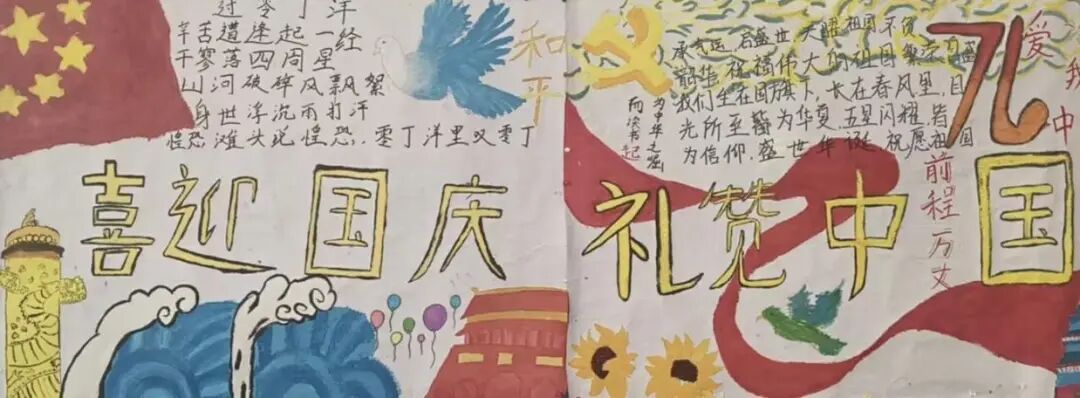 过零丁洋
辛苦遭逢起一经
干寥落四周星
山河破碎风飘絮
身世浮沉雨打
惶恐滩头说惶恐,零丁洋里叹零丁
和平
喜迎国庆
承气运,启盛世,天耀祖国不负
韶华,祝福伟大的祖国繁荣昌盛
我们生在国旗下,长在春风里,目
光所至皆为华夏,五星闪耀,皆
为信仰,盛世华诞,祝愿祖国
为中华之崛
起
而读书
76
爱我中
前程万丈
礼赞中国